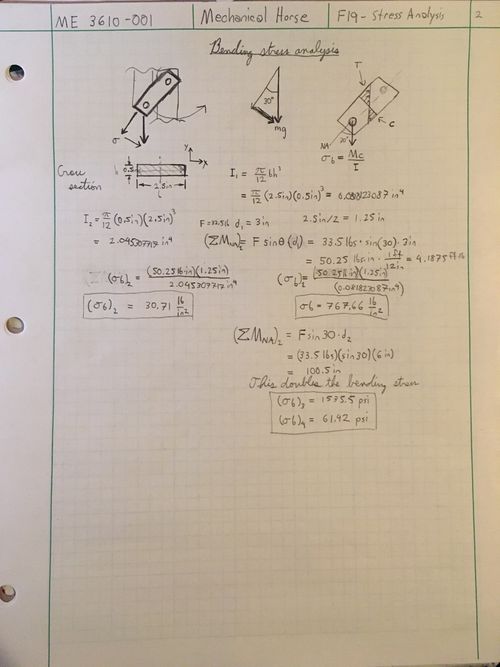 ME 3610-001 Mechanical Horse F19 - Stress Analysis 2
Bending stress analysis
30°
mg
T
C
NA
σ
σb = Mc/I
Cross section
0.5in
2.5in
L
y
x
I₁ = π/12 bh³
= π/12 (2.5in)(0.5in)³ = 0.0818123087 in⁴
I₂ = π/12 (0.5in)(2.5in)³
= 2.045307717 in⁴
d₁ = 3in
2.5in/2 = 1.25in
(ΣM_NA)₂ = F sinθ (d₁) = 33.5 lbs · sin(30) · 3in
= 50.25 lbs·in · 1ft/12in = 4.1875 ft lb
(σb)₂ = (50.25 lb in)(1.25in) / 2.045307717 in⁴
(σb)₂ = 30.71 lb/in²
(50.25 lb in)(1.25in)
σb = 767.66 lb/in²
(ΣM_NA)₂ = F sin 30 · d₂
= (33.5 lbs)(sin 30)(6in)
= 100.5 in
This doubles the bending stress
(σb)₃ = 1535.5 psi
(σb)₄ = 61.42 psi